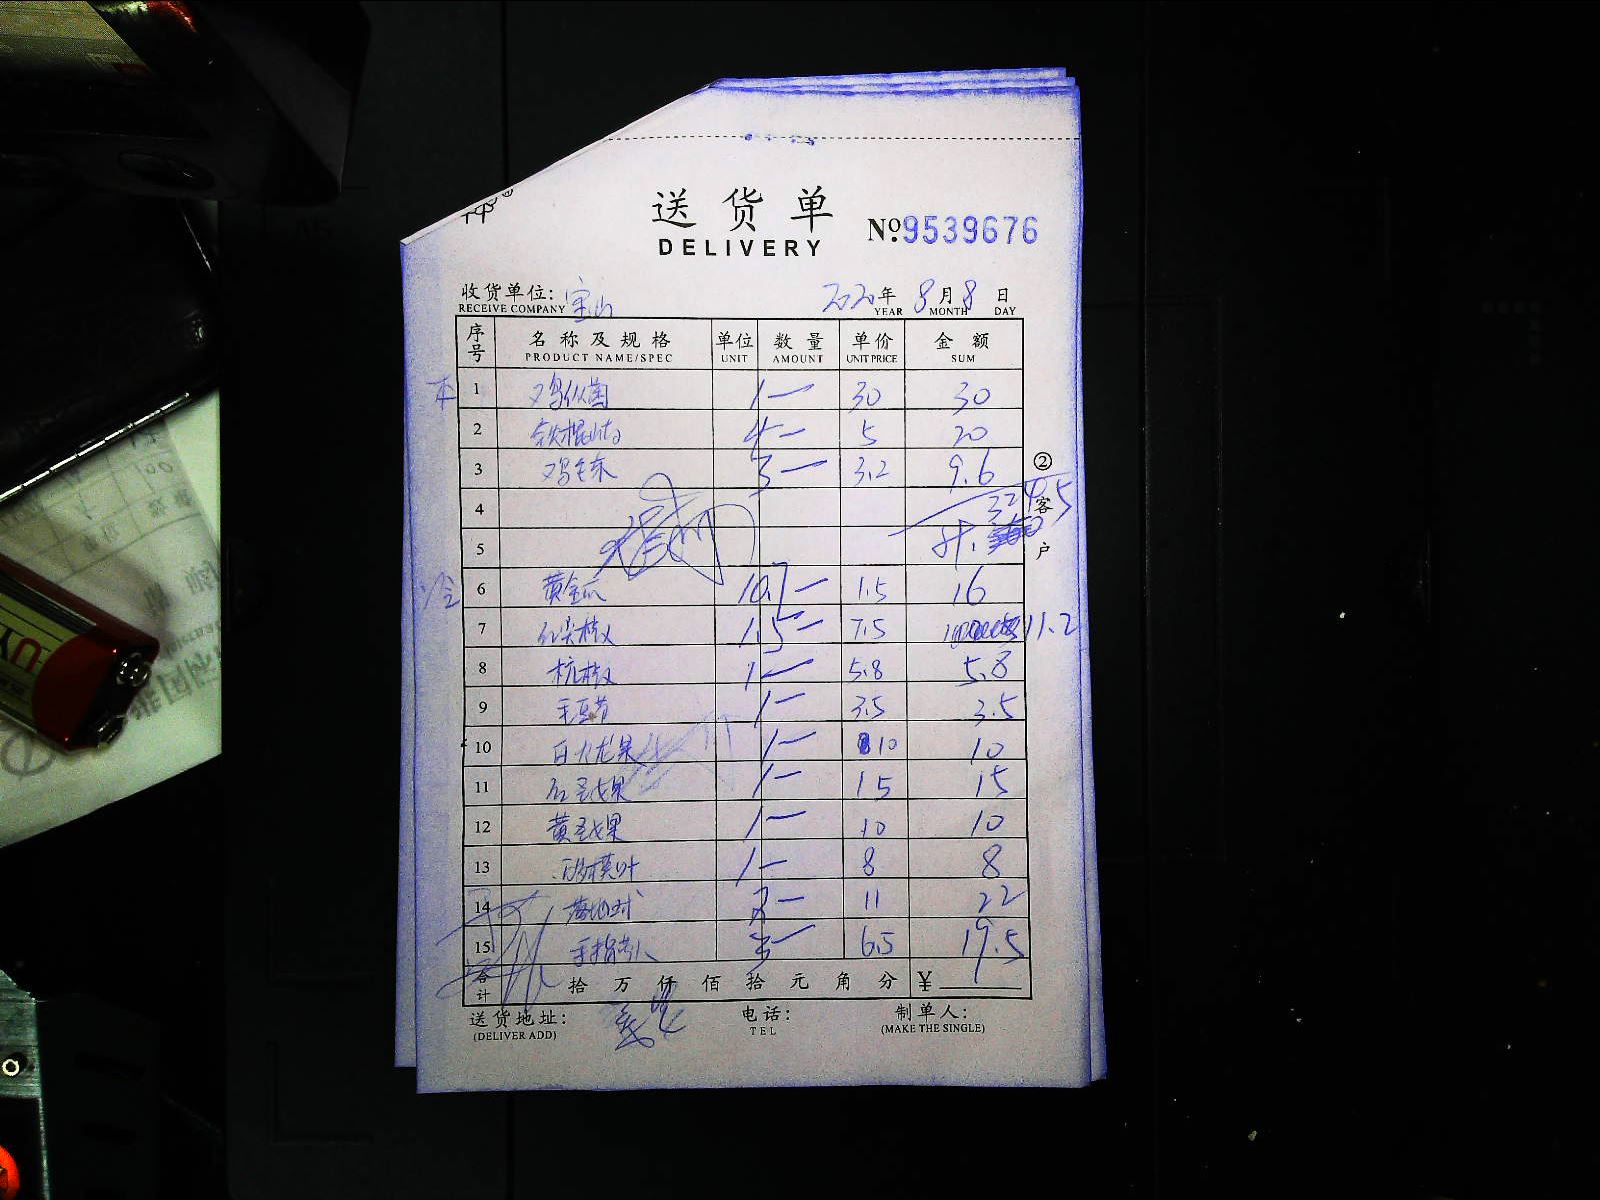 送货单
DELIVERY
No.9539676
收货单位: 宝山 2020年 8月 8日
RECEIVE COMPANY YEAR MONTH DAY
序号 名称及规格 单位 数量 单价 金额
PRODUCT NAME/SPEC UNIT AMOUNT UNIT PRICE SUM
本 1 鸡枞菌 1 30 30
2 铁棍山药 4 5 20
3 鸡毛菜 3 3.2 9.6
②
客
户
4
5
冷 6 黄金瓜 10.7 1.5 16
7 红尖椒 1.5 7.5 11.2
8 杭椒 1 5.8 5.8
9 毛豆节 1 3.5 3.5
10 白火龙果 1 10 10
11 红圣女果 1 15 15
12 黄圣女果 1 10 10
13 1 8 8
14 11 22
15 手指 3 6.5 19.5
合计 拾 万 仟 佰 拾 元 角 分 ¥
送货地址: 电话: 制单人:
(DELIVER ADD) TEL (MAKE THE SINGLE)